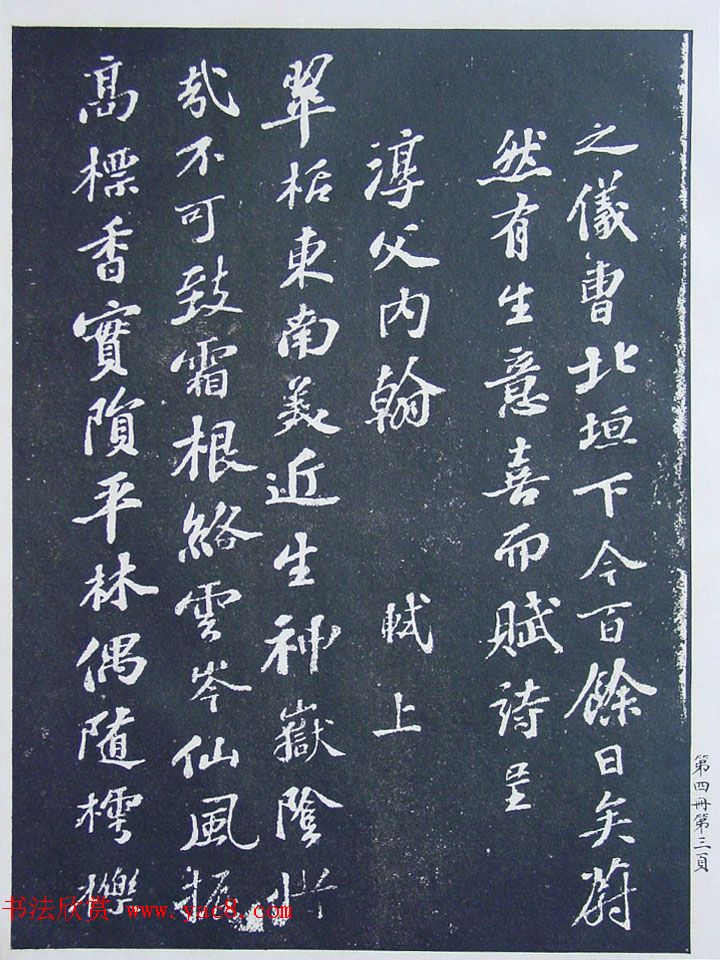 之儀曹北垣下今百餘日矣蔚
然有生意喜而賦詩呈
淳父內翰　軾上
翠栝東南美近生神嶽陰惜
哉不可致霜根絡雲岑仙風振
高標香實隕平林偶隨樗櫟
第四冊第三頁
书法欣赏 www.yac8.com